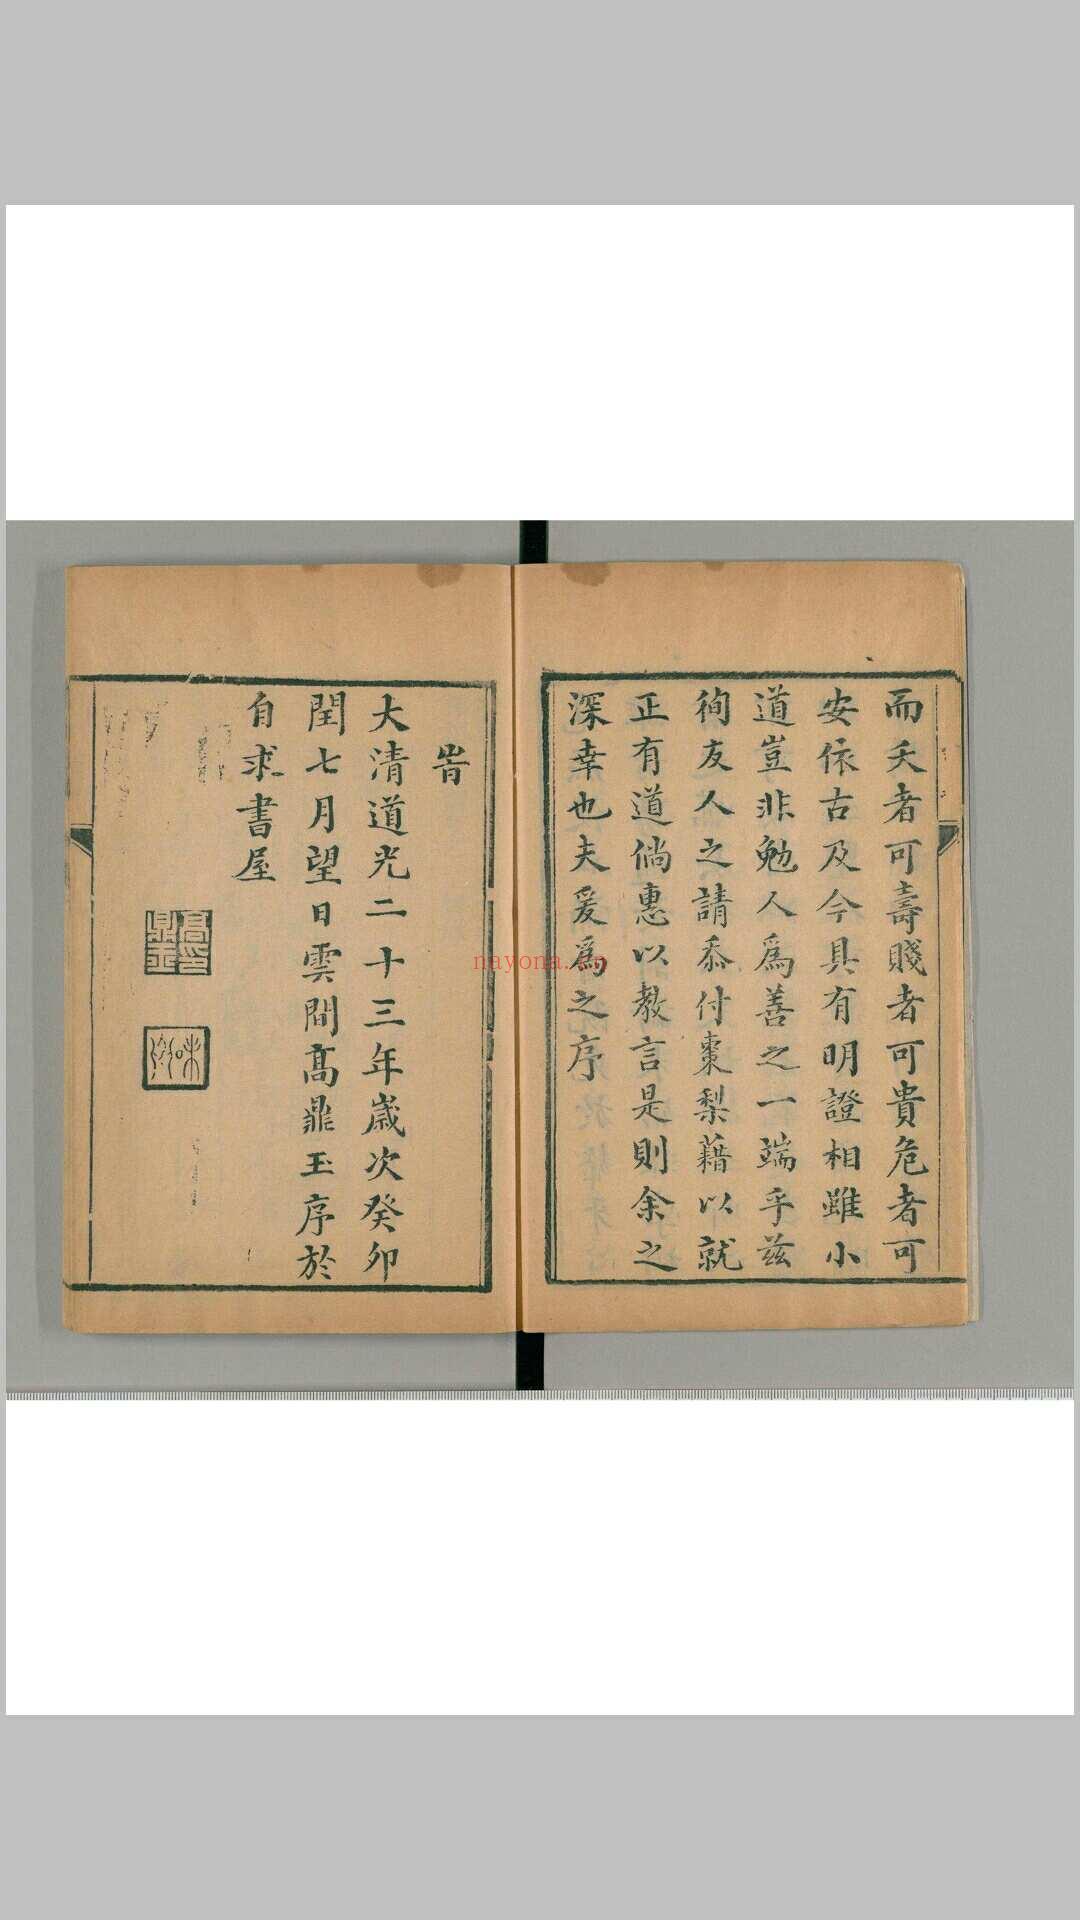 而夭者可壽賤者可貴危者可
安依古及今具有明證相雖小
道豈非勉人爲善之一端乎茲
徇友人之請忝付棗梨藉以就
正有道倘惠以教言是則余之
深幸也夫爰爲之序
旹
大清道光二十三年歲次癸卯
閏七月望日雲間高鼎玉序於
自求書屋
高鼎玉印
nayona.cn